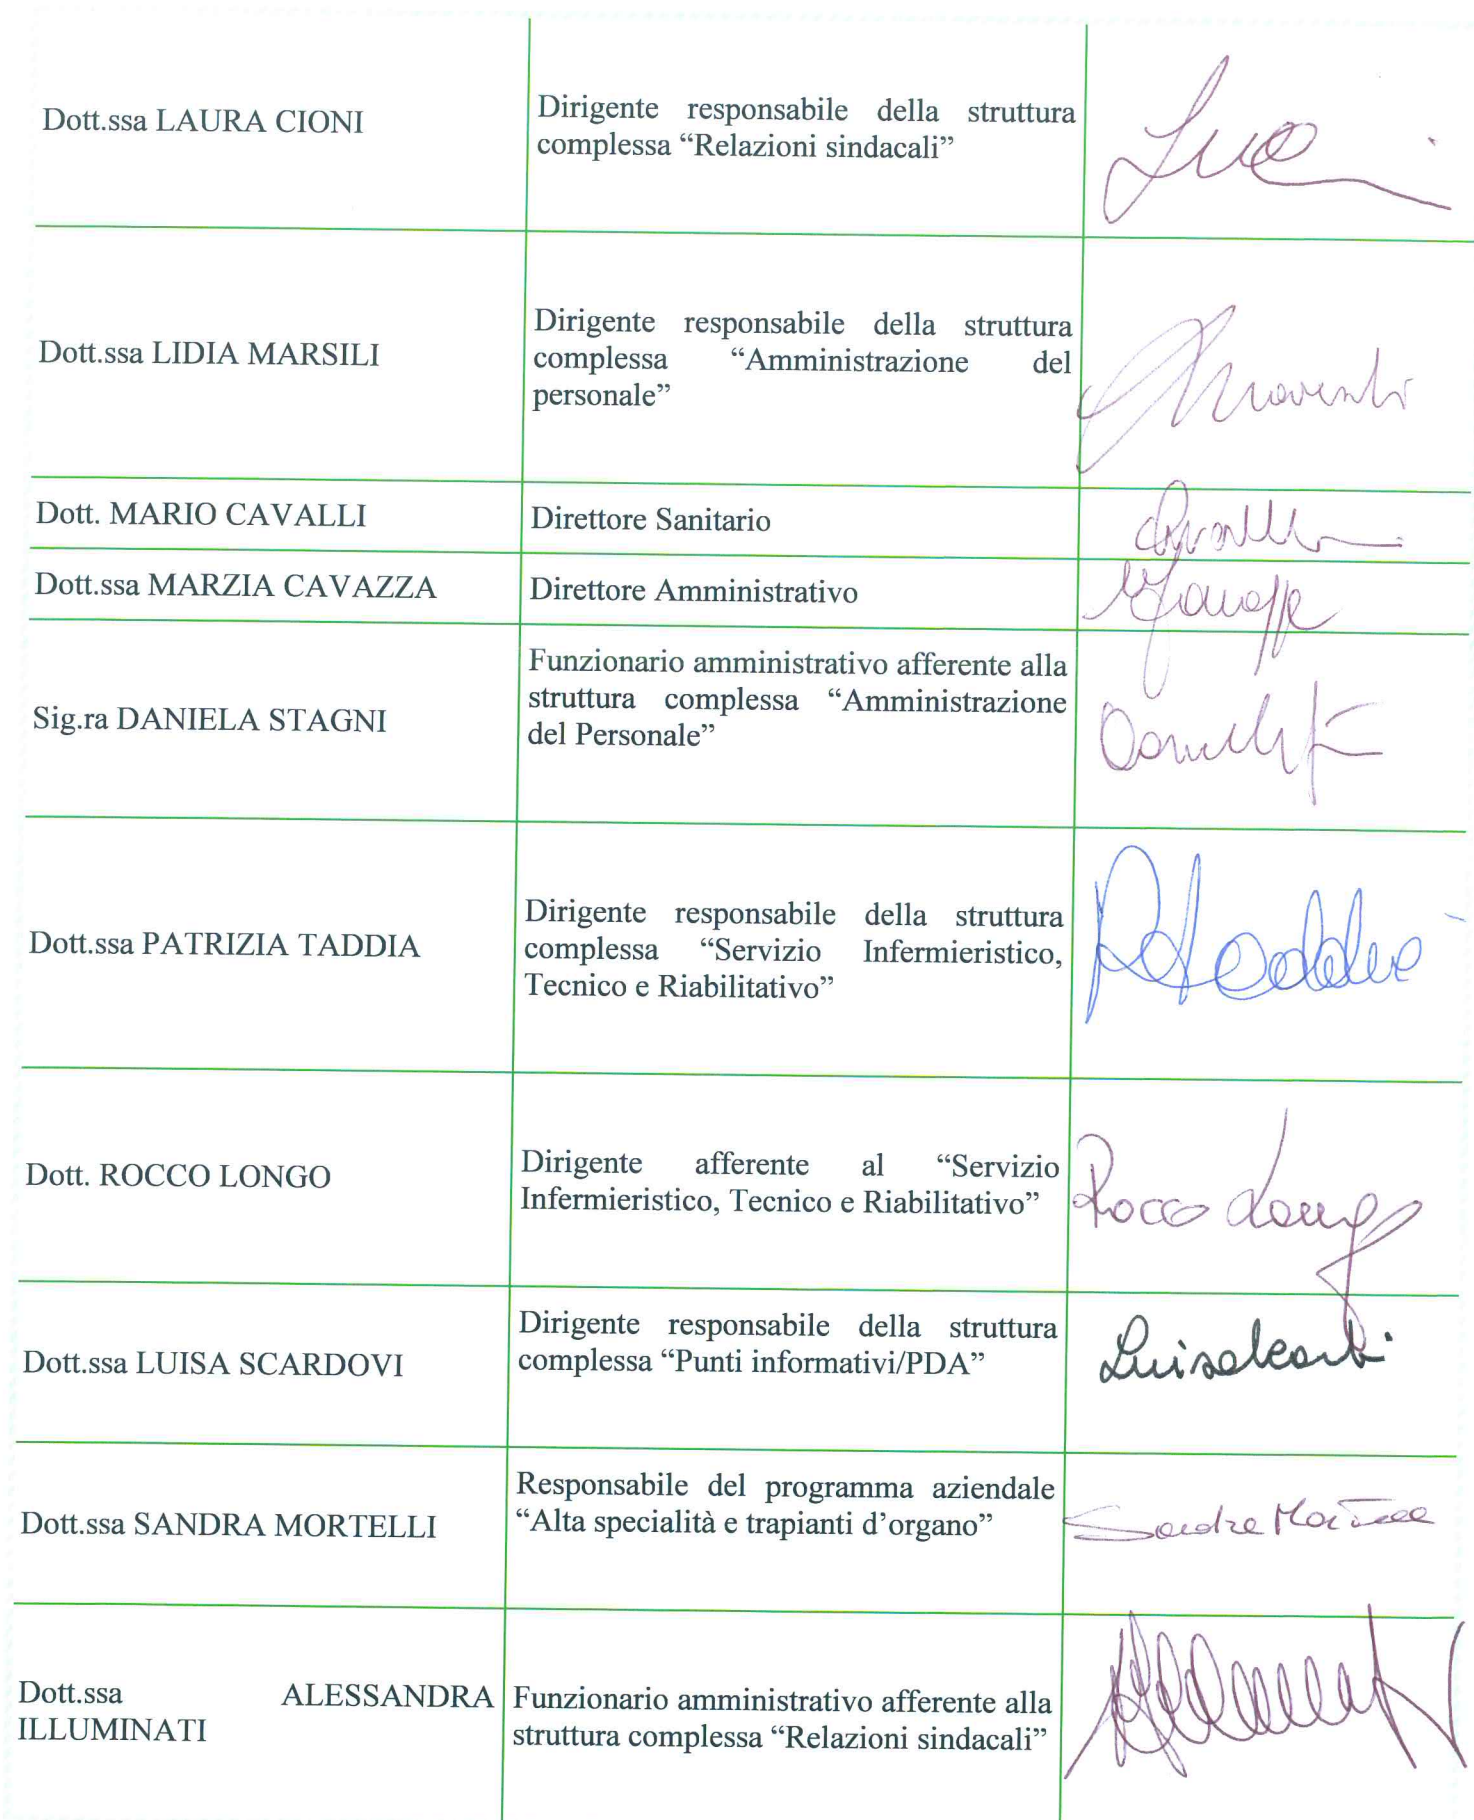 Dott.ssa LAURA CIONI
Dirigente responsabile della struttura
complessa “Relazioni sindacali”
Dott.ssa LIDIA MARSILI
Dirigente responsabile della struttura
complessa “Amministrazione del
personale”
Dott. MARIO CAVALLI
Direttore Sanitario
Dott.ssa MARZIA CAVAZZA
Direttore Amministrativo
Sig.ra DANIELA STAGNI
Funzionario amministrativo afferente alla
struttura complessa “Amministrazione
del Personale”
Dott.ssa PATRIZIA TADDIA
Dirigente responsabile della struttura
complessa “Servizio Infermieristico,
Tecnico e Riabilitativo”
Dott. ROCCO LONGO
Dirigente afferente al “Servizio
Infermieristico, Tecnico e Riabilitativo”
Rocco Longo
Dott.ssa LUISA SCARDOVI
Dirigente responsabile della struttura
complessa “Punti informativi/PDA”
Dott.ssa SANDRA MORTELLI
Responsabile del programma aziendale
“Alta specialità e trapianti d’organo”
Sandra Mortelli
Dott.ssa ALESSANDRA
ILLUMINATI
Funzionario amministrativo afferente alla
struttura complessa “Relazioni sindacali”